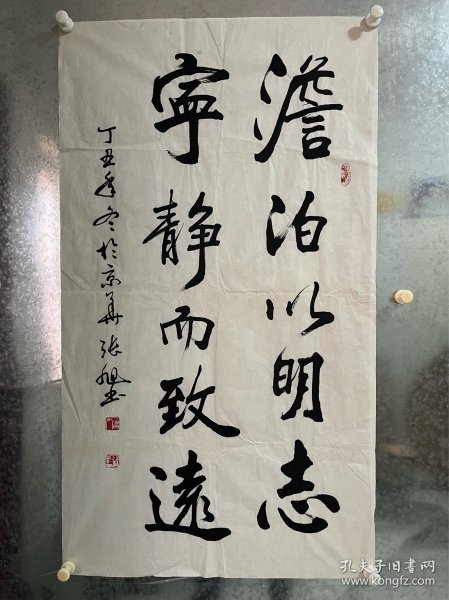 澹泊以明志
寧静而致遠
丁丑年冬於京華張旭書
孔夫子旧书网
www.kongfz.com